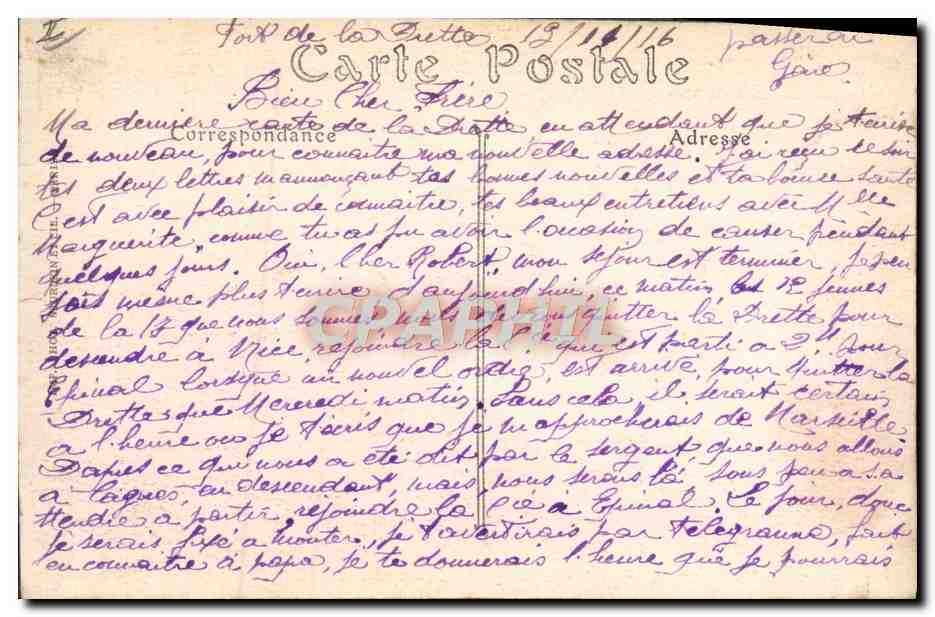 II
Fort de la Drette 12/11/16 passer en
Gare
Carte Postale
Bien Cher Frère
Correspondance Adresse
Ma dernière carte de la Drette en attendant que je t'écrive
de nouveau, pour connaitre ma nouvelle adresse. J'ai reçu ce soir
tes deux lettres m'annonçant tes bonnes nouvelles et ta bonne santé
C'est avec plaisir de connaitre, tes beaux entretiens avec Mlle
Marguerite, comme tu as pu avoir l'occasion de causer pendant
quelques jours. Oui, Cher Robert, mon séjour est terminer, je pen
sais même plus t'écrire d'aujourd'hui, ce matin les 12 jeunes
de la 17 que nous sommes nous devions quitter la Drette pour
descendre à Nice, rejoindre la Cie qui est parti a 2h pour
Epinal lorsque un nouvel ordre, est arrivé, pour quitter la
Drette que Mercredi matin. Sans cela, il serait certain
a l'heure ou je t'écris que je m'approcherais de Marseille
D'après ce qui nous a été dit par le sergent que nous allons
a Cagnes, en descendant, mais, nous serons là sous peu a s'a
ttendre à partir rejoindre la Cie à Epinal. Le jour, donc
je serais fixé a monter, je t'avertirais par télégramme, fait
en connaitre à papa, je te donnerais l'heure que je pourrais
CPAPHIL